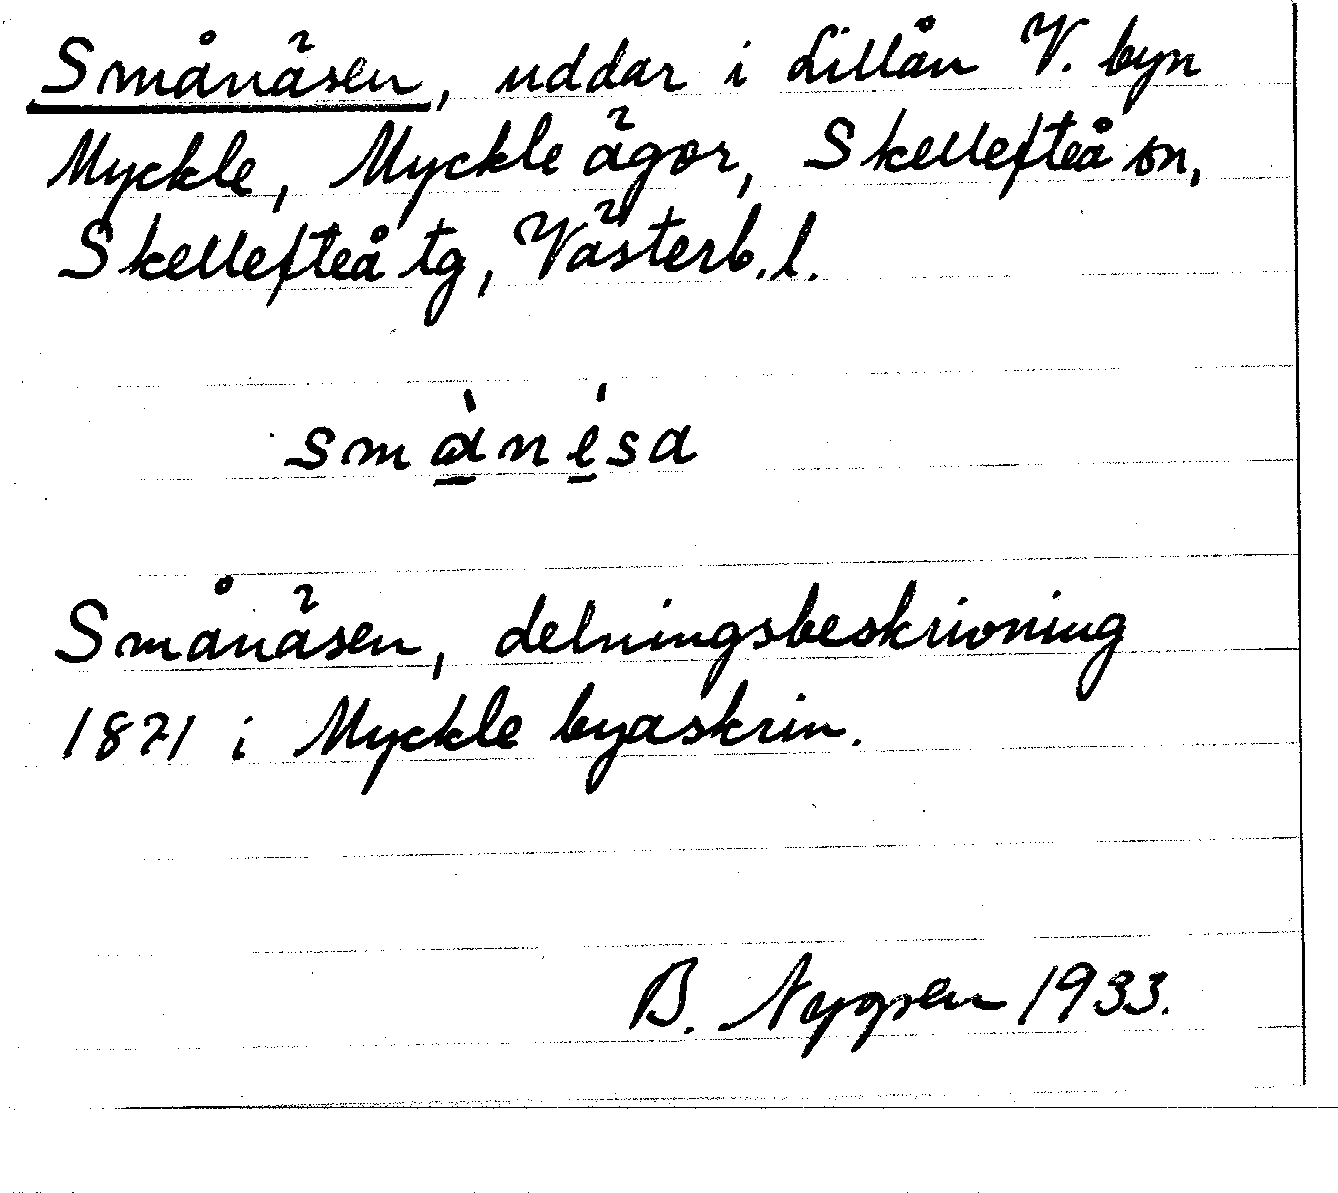 Smånäsen, uddar i Lillån V. byn
Myckle, Myckle ägor, Skellefteå sn,
Skellefteå tg, Västerb. l.
Smånäsen, delningsbeskrivning
1871 i Myckle byaskrin.
B. 1933.